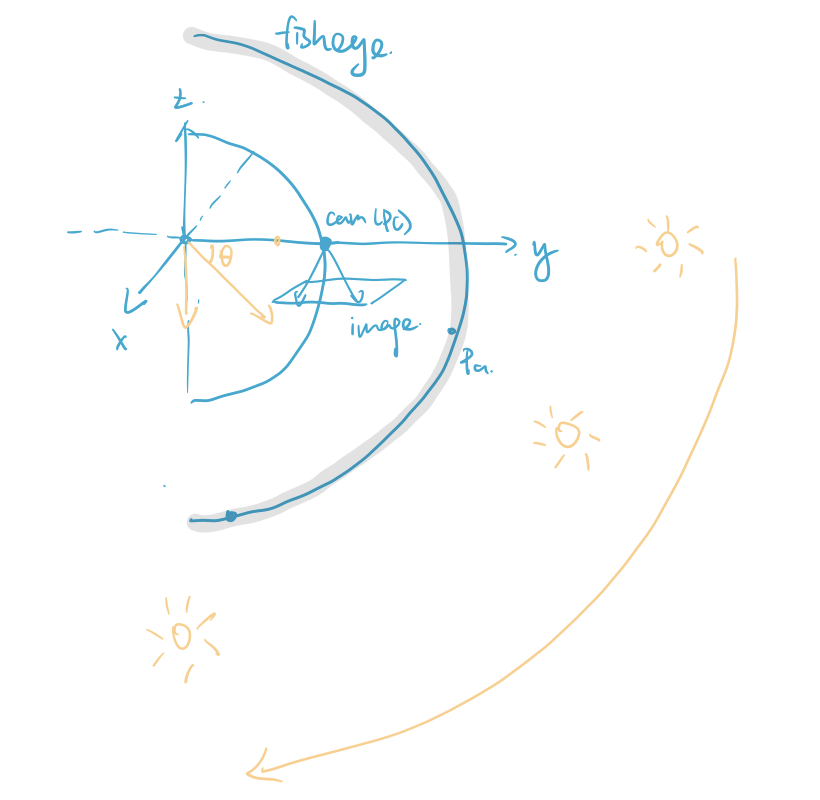 fisheye.
z.
cam (Pc)
y
θ
x
image.
Pa.